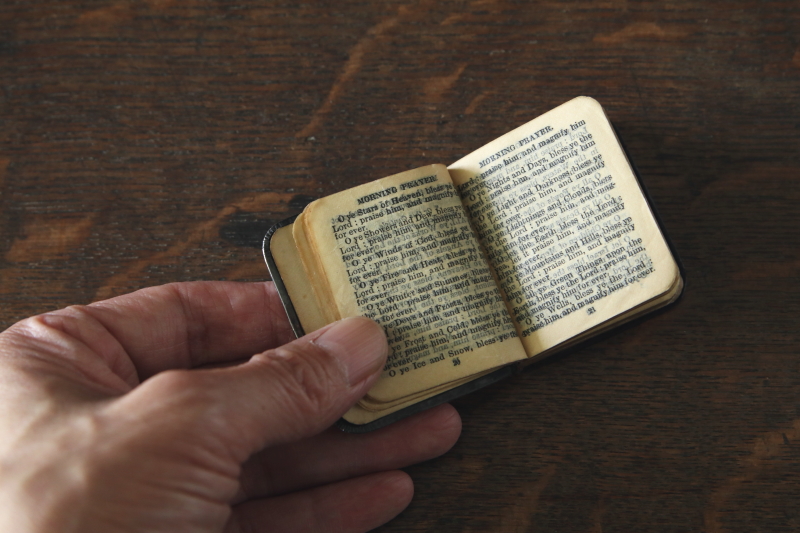 MORNING PRAYER.
O ye Stars of Heaven, bless ye
Lord: praise him, and magnify
for ever.
O ye Showers and Dew, bless
Lord: praise him, and magnify
for ever.
O ye Winds of God, bless
Lord: praise him, and magnify
for ever.
O ye Fire and Heat, bless
Lord: praise him, and magnify
for ever.
ye Winter and Summer,
Lord: praise him, and
ye Dews and Frosts, bless
praise him, and magnify
ye Frost and Cold, bless
praise him, and magnify
ever.
O ye Ice and Snow, bless ye
MORNING PRAYER.
praise him, and magnify him
ye Nights and Days, bless ye the
praise him, and magnify him
Light and Darkness, bless ye
Lord: praise him, and magnify
Lightnings and Clouds, bless
Lord: praise him, and mag-
for ever.
Earth bless the Lord:
praise him, and magnify
for ever.
ye Mountains and Hills, bless ye
Lord: praise him, and magnify
for ever.
O ye Green Things upon the
bless ye the Lord: praise him,
magnify him for ever.
O ye Wells, bless ye the Lord:
praise him, and magnify him for ever.
21